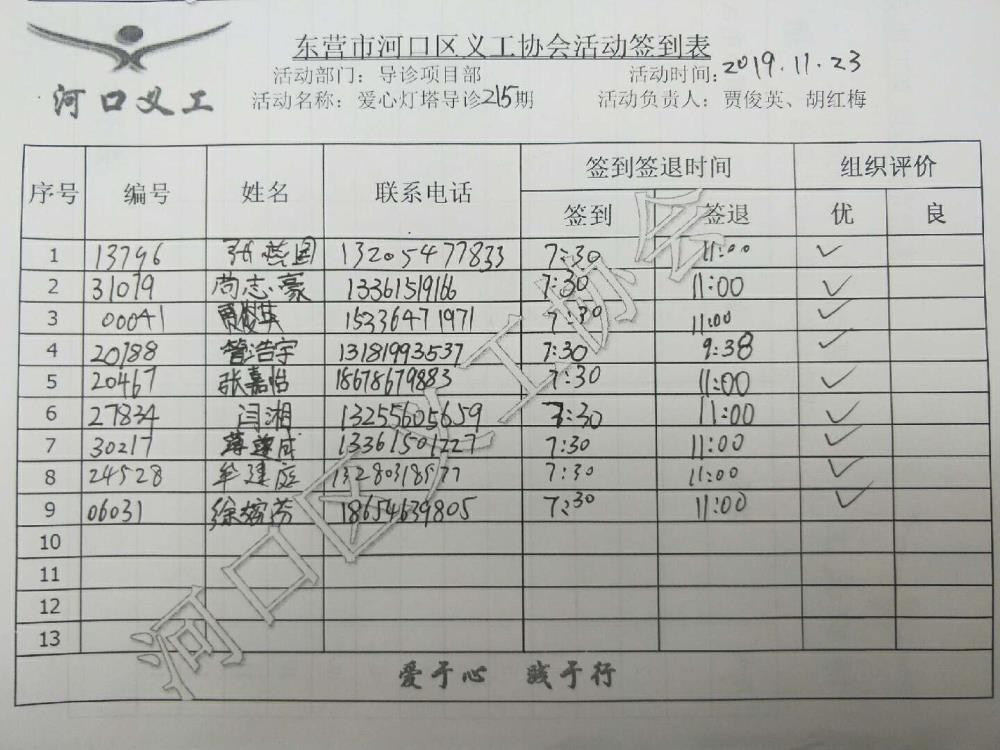 东营市河口区义工协会活动签到表
河口义工
活动部门：导诊项目部 活动时间：2019.11.23
活动名称：爱心灯塔导诊215期 活动负责人：贾俊英、胡红梅
序号 编号 姓名 联系电话 签到签退时间 组织评价
签到 签退 优 良
1 13796 张燕国 13205477833 7:30 11:00 ✓
2 31079 尚志豪 13361519166 7:30 11:00 ✓
3 00041 贾俊英 15336471971 7:30 11:00 ✓
4 20188 管浩宇 13181993537 7:30 9:38 ✓
5 20467 张嘉怡 18678679883 7:30 11:00 ✓
6 27834 闫湘 13255605659 7:30 11:00 ✓
7 30217 13361501227 7:30 11:00 ✓
8 24528 牟建庭 13280318977 7:30 11:00 ✓
9 06031 18654639805 7:30 11:00 ✓
10
11
12
13
爱于心 践于行
河口区义工协会